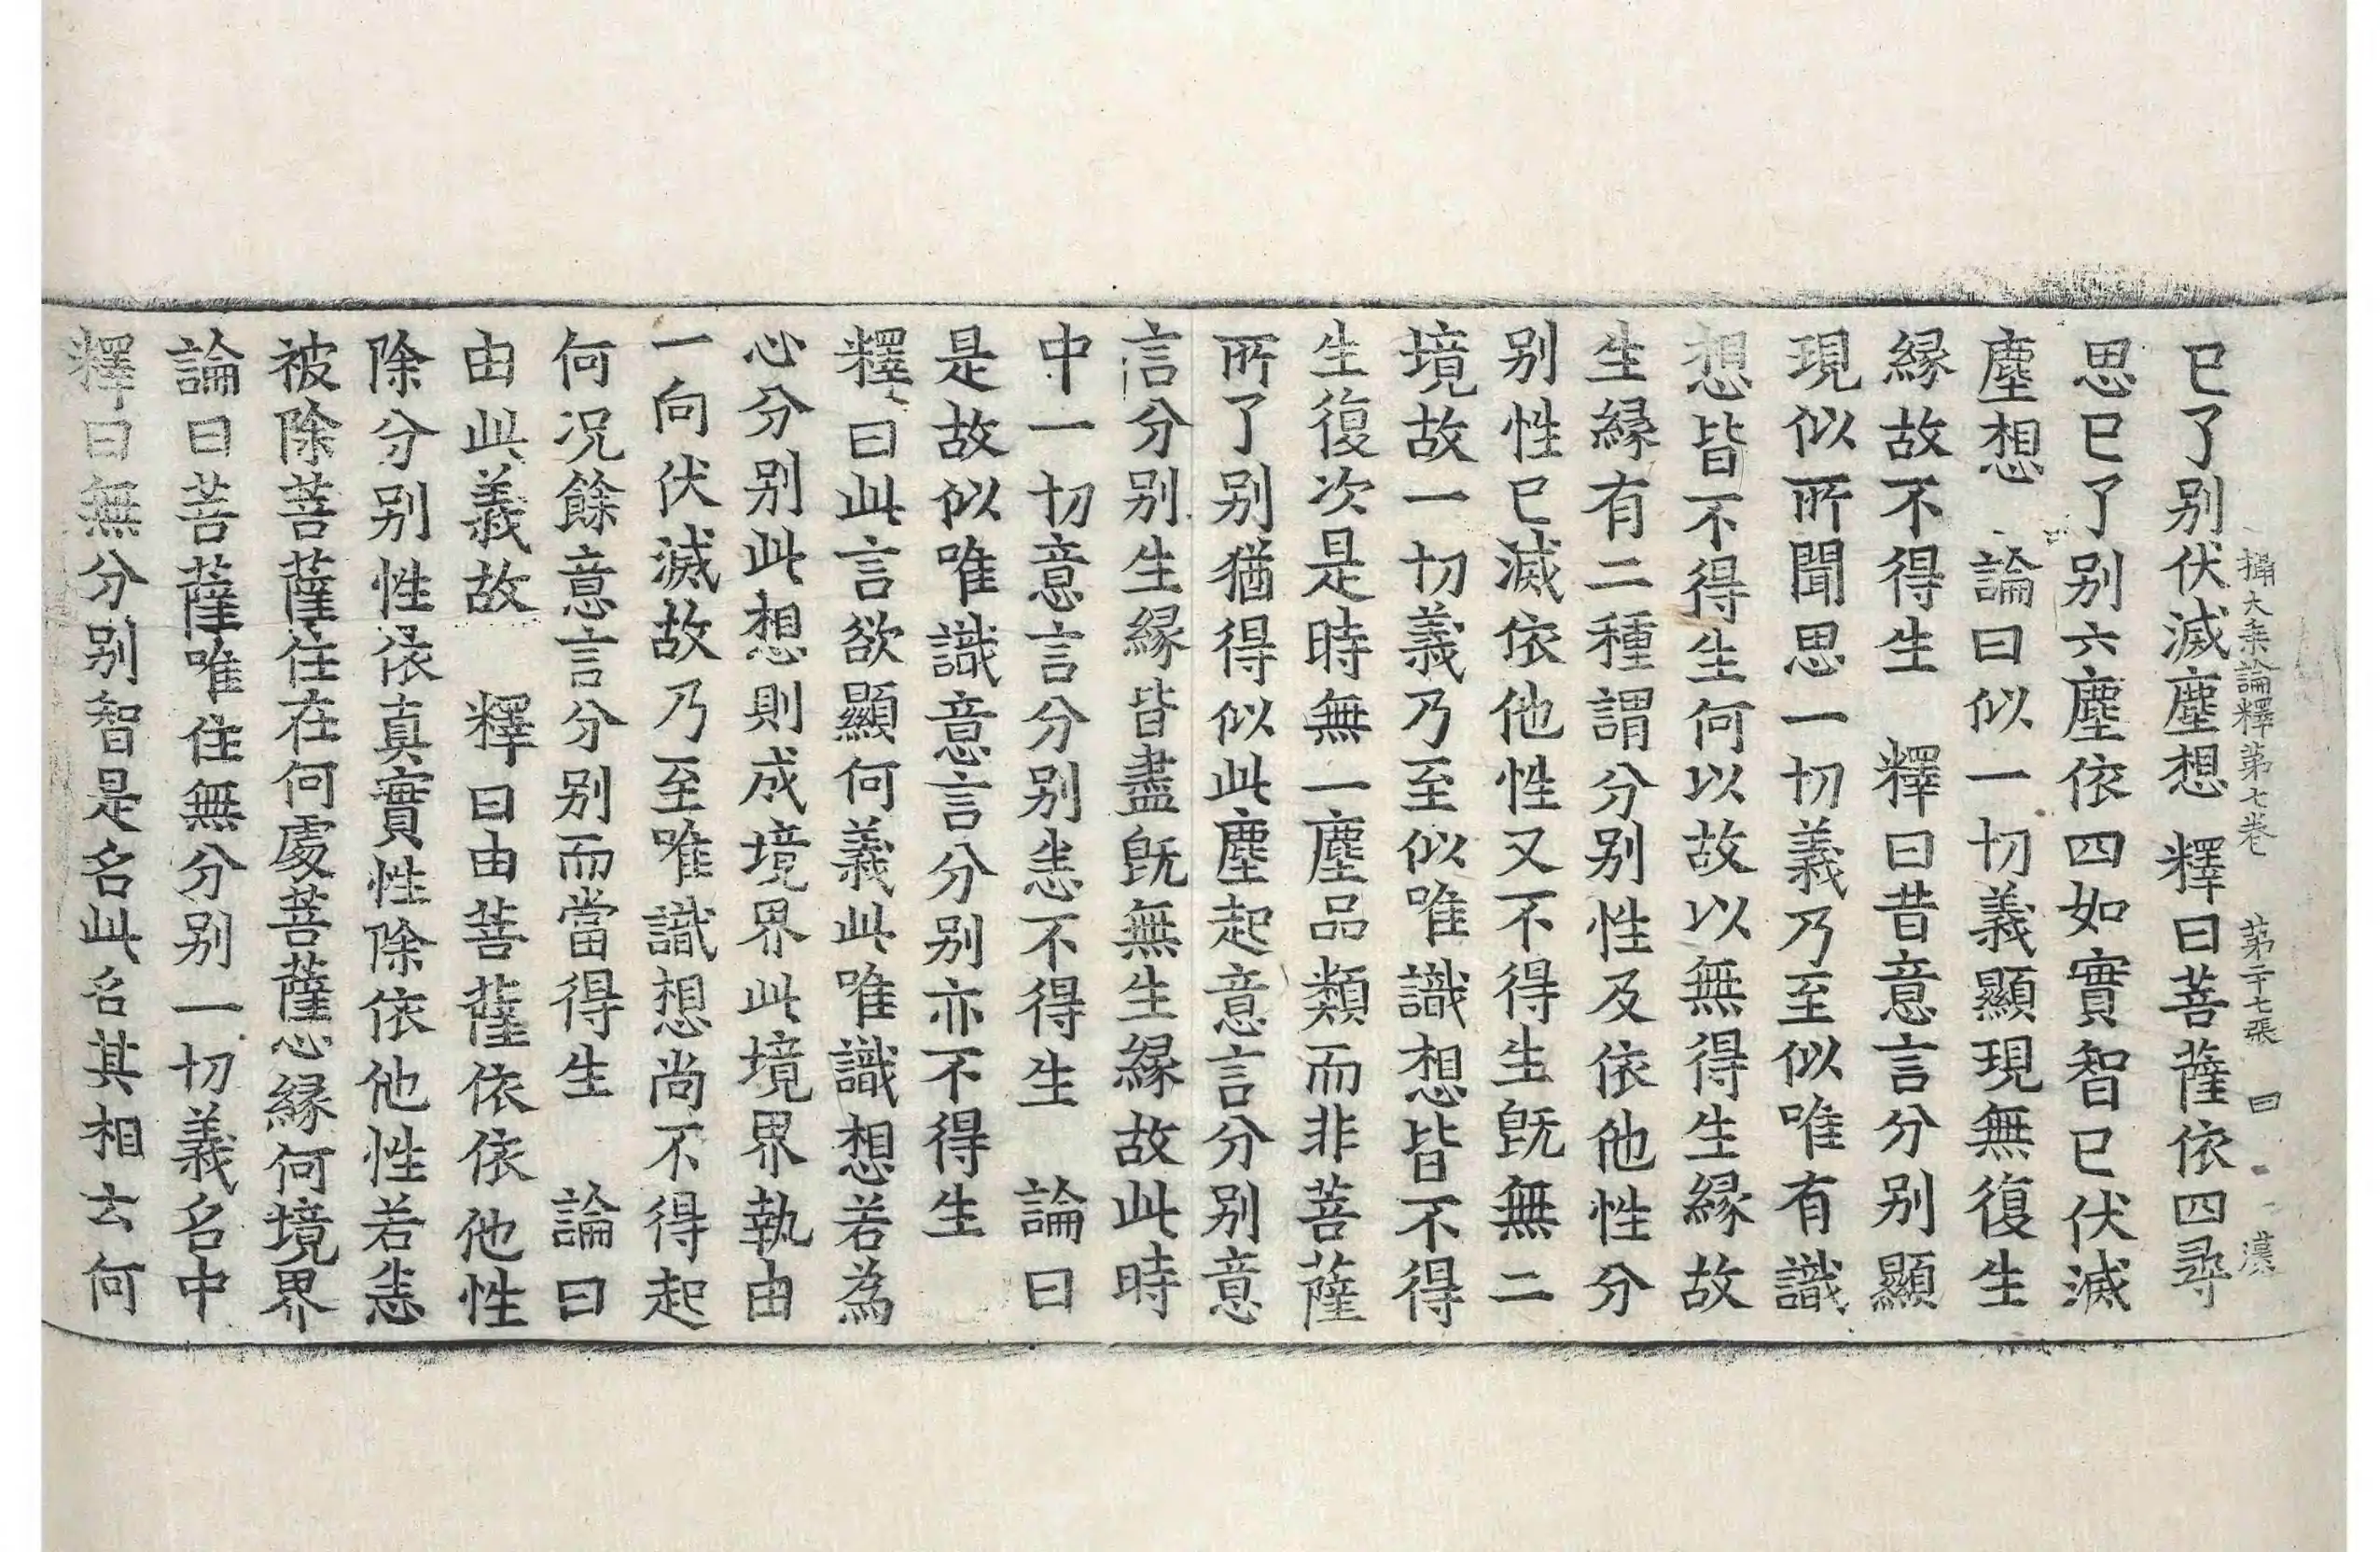 攝大乗論釋第七卷 第二十七張 曰 漢
已了別伏滅塵想 釋曰菩薩依四尋
思已了別六塵依四如實智已伏滅
塵想 論曰似一切義顯現無復生
縁故不得生 釋曰昔意言分別顯
現似所聞思一切義乃至似唯有識
想皆不得生何以故以無得生縁故
生縁有二種謂分別性及依他性分
別性已滅依他性又不得生旣無二
境故一切義乃至似唯識想皆不得
生復次是時無一塵品類而非菩薩
所了別猶得似此塵起意言分別意
言分別生縁皆盡旣無生縁故此時
中一切意言分別恙不得生 論曰
是故似唯識意言分別亦不得生
釋曰此言欲顯何義此唯識想若為
心分別此想則成境界此境界執由
一向伏滅故乃至唯識想尚不得起
何況餘意言分別而當得生 論曰
由此義故 釋曰由菩薩依依他性
除分別性依真實性除依他性若恙
被除菩薩住在何處菩薩心縁何境界
論曰菩薩唯住無分別一切義名中
釋曰無分別智是名此名其相云何